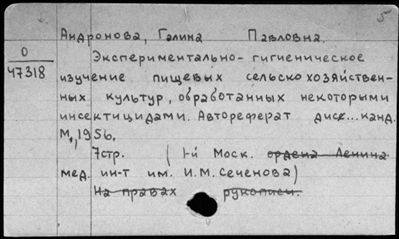 5
Андронова, Галина Павловна.
О
47318
Экспериментально-гигиеническое
изучение пищевых сельскохозяйствен-
ных культур, обработанных некоторыми
инсектицидами. Автореферат дисс...канд.
М., 1956.
7стр. (1-й Моск. ордена Ленина
мед. ин-т им. И.М. Сеченова)
На правах рукописи.